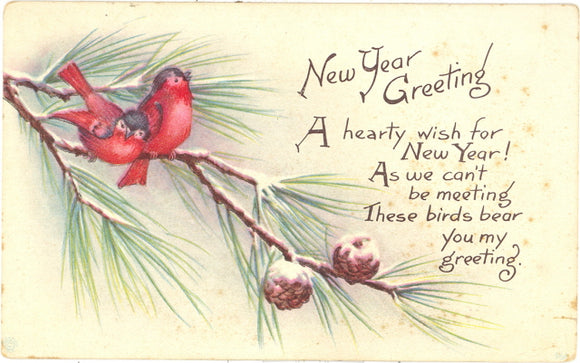 New Year
Greeting
A hearty wish for
New Year!
As we can't
be meeting
These birds bear
you my
greeting.